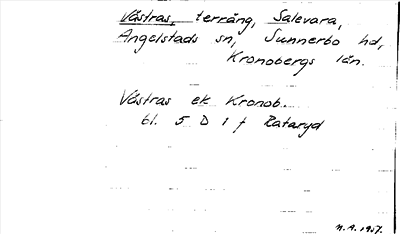 Västras, terräng, Salevara,
Angelstads sn, Sunnerbo hd,
Kronobergs län.
Västras ek Kronob.
bl. 5 D 1 f Rataryd
N.A. 1957.